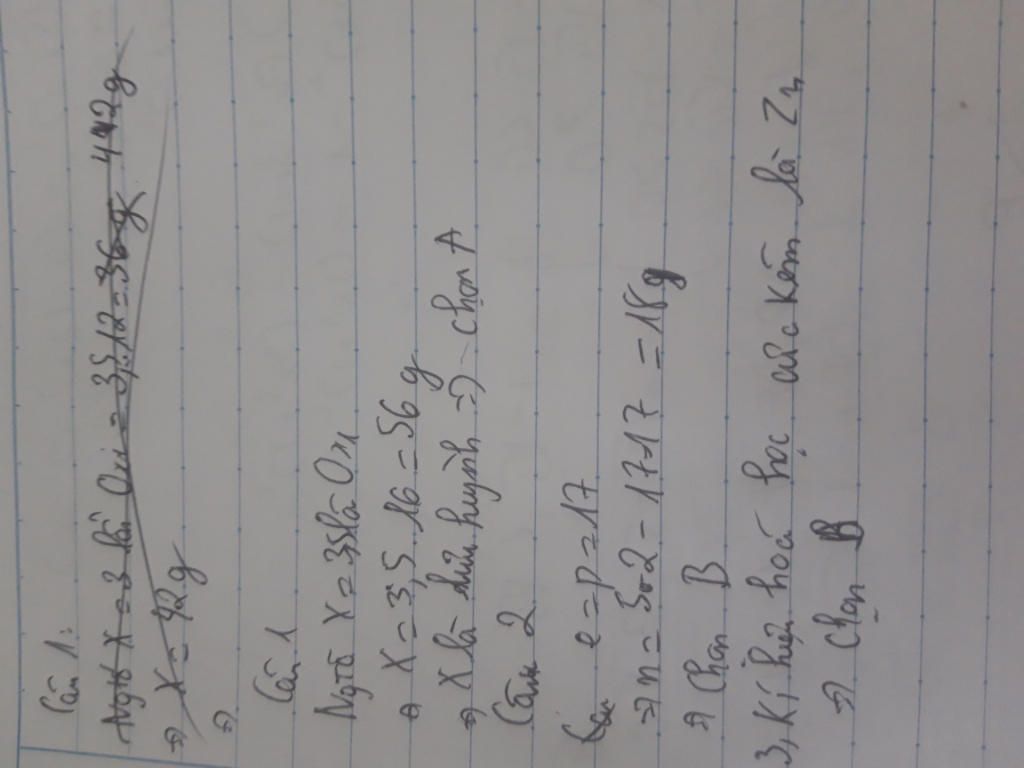 Câu 1:
Ngtố X = 3 lần Oxi = 3,5.12 = 36g 442g
⇒ X = 42g
⇒
Câu 1
Ngtố X = 3,5 lần Oxi
⇒ X = 3,5.16 = 56g
⇒ X là lưu huỳnh ⇒ chọn A
Câu 2
e = p = 17
⇒ n = 502 - 17-17 = 18g
⇒ Chọn B
3, Kí hiệu hoá học của kẽm là Zn
⇒ Chọn B